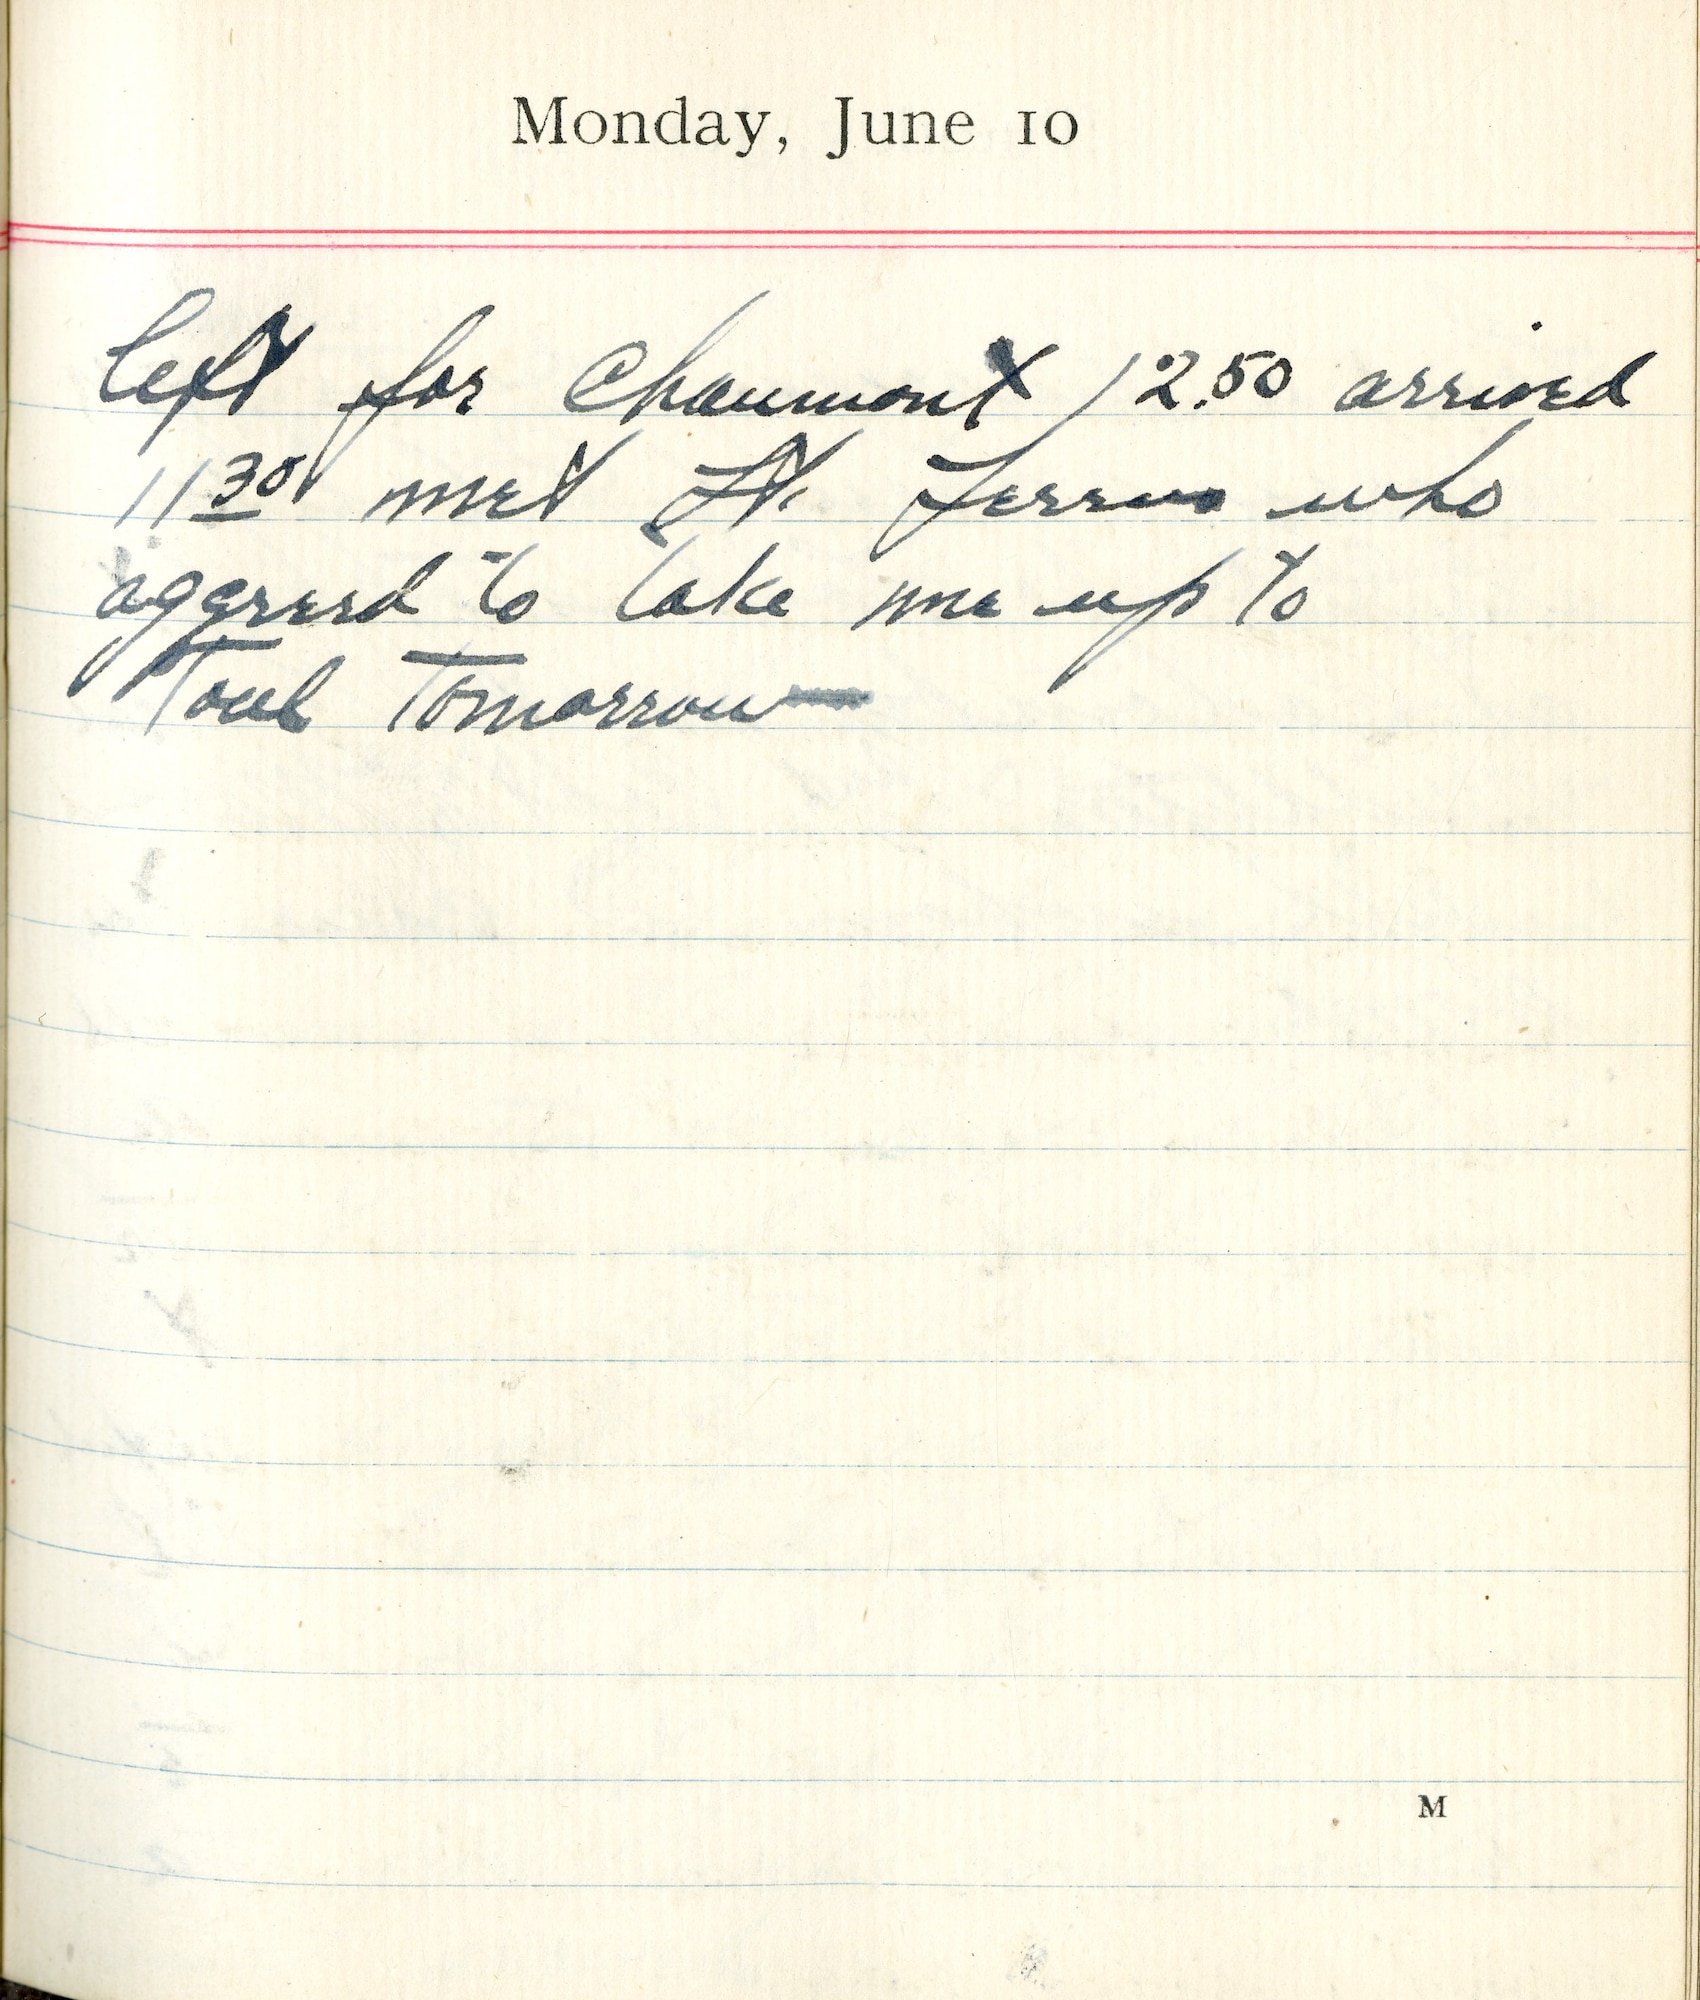 Monday, June 10
left for Chaumont 12.50 arrived
11 30 met Lt. who
aggreed to take me up to
Toul Tomorrow
M